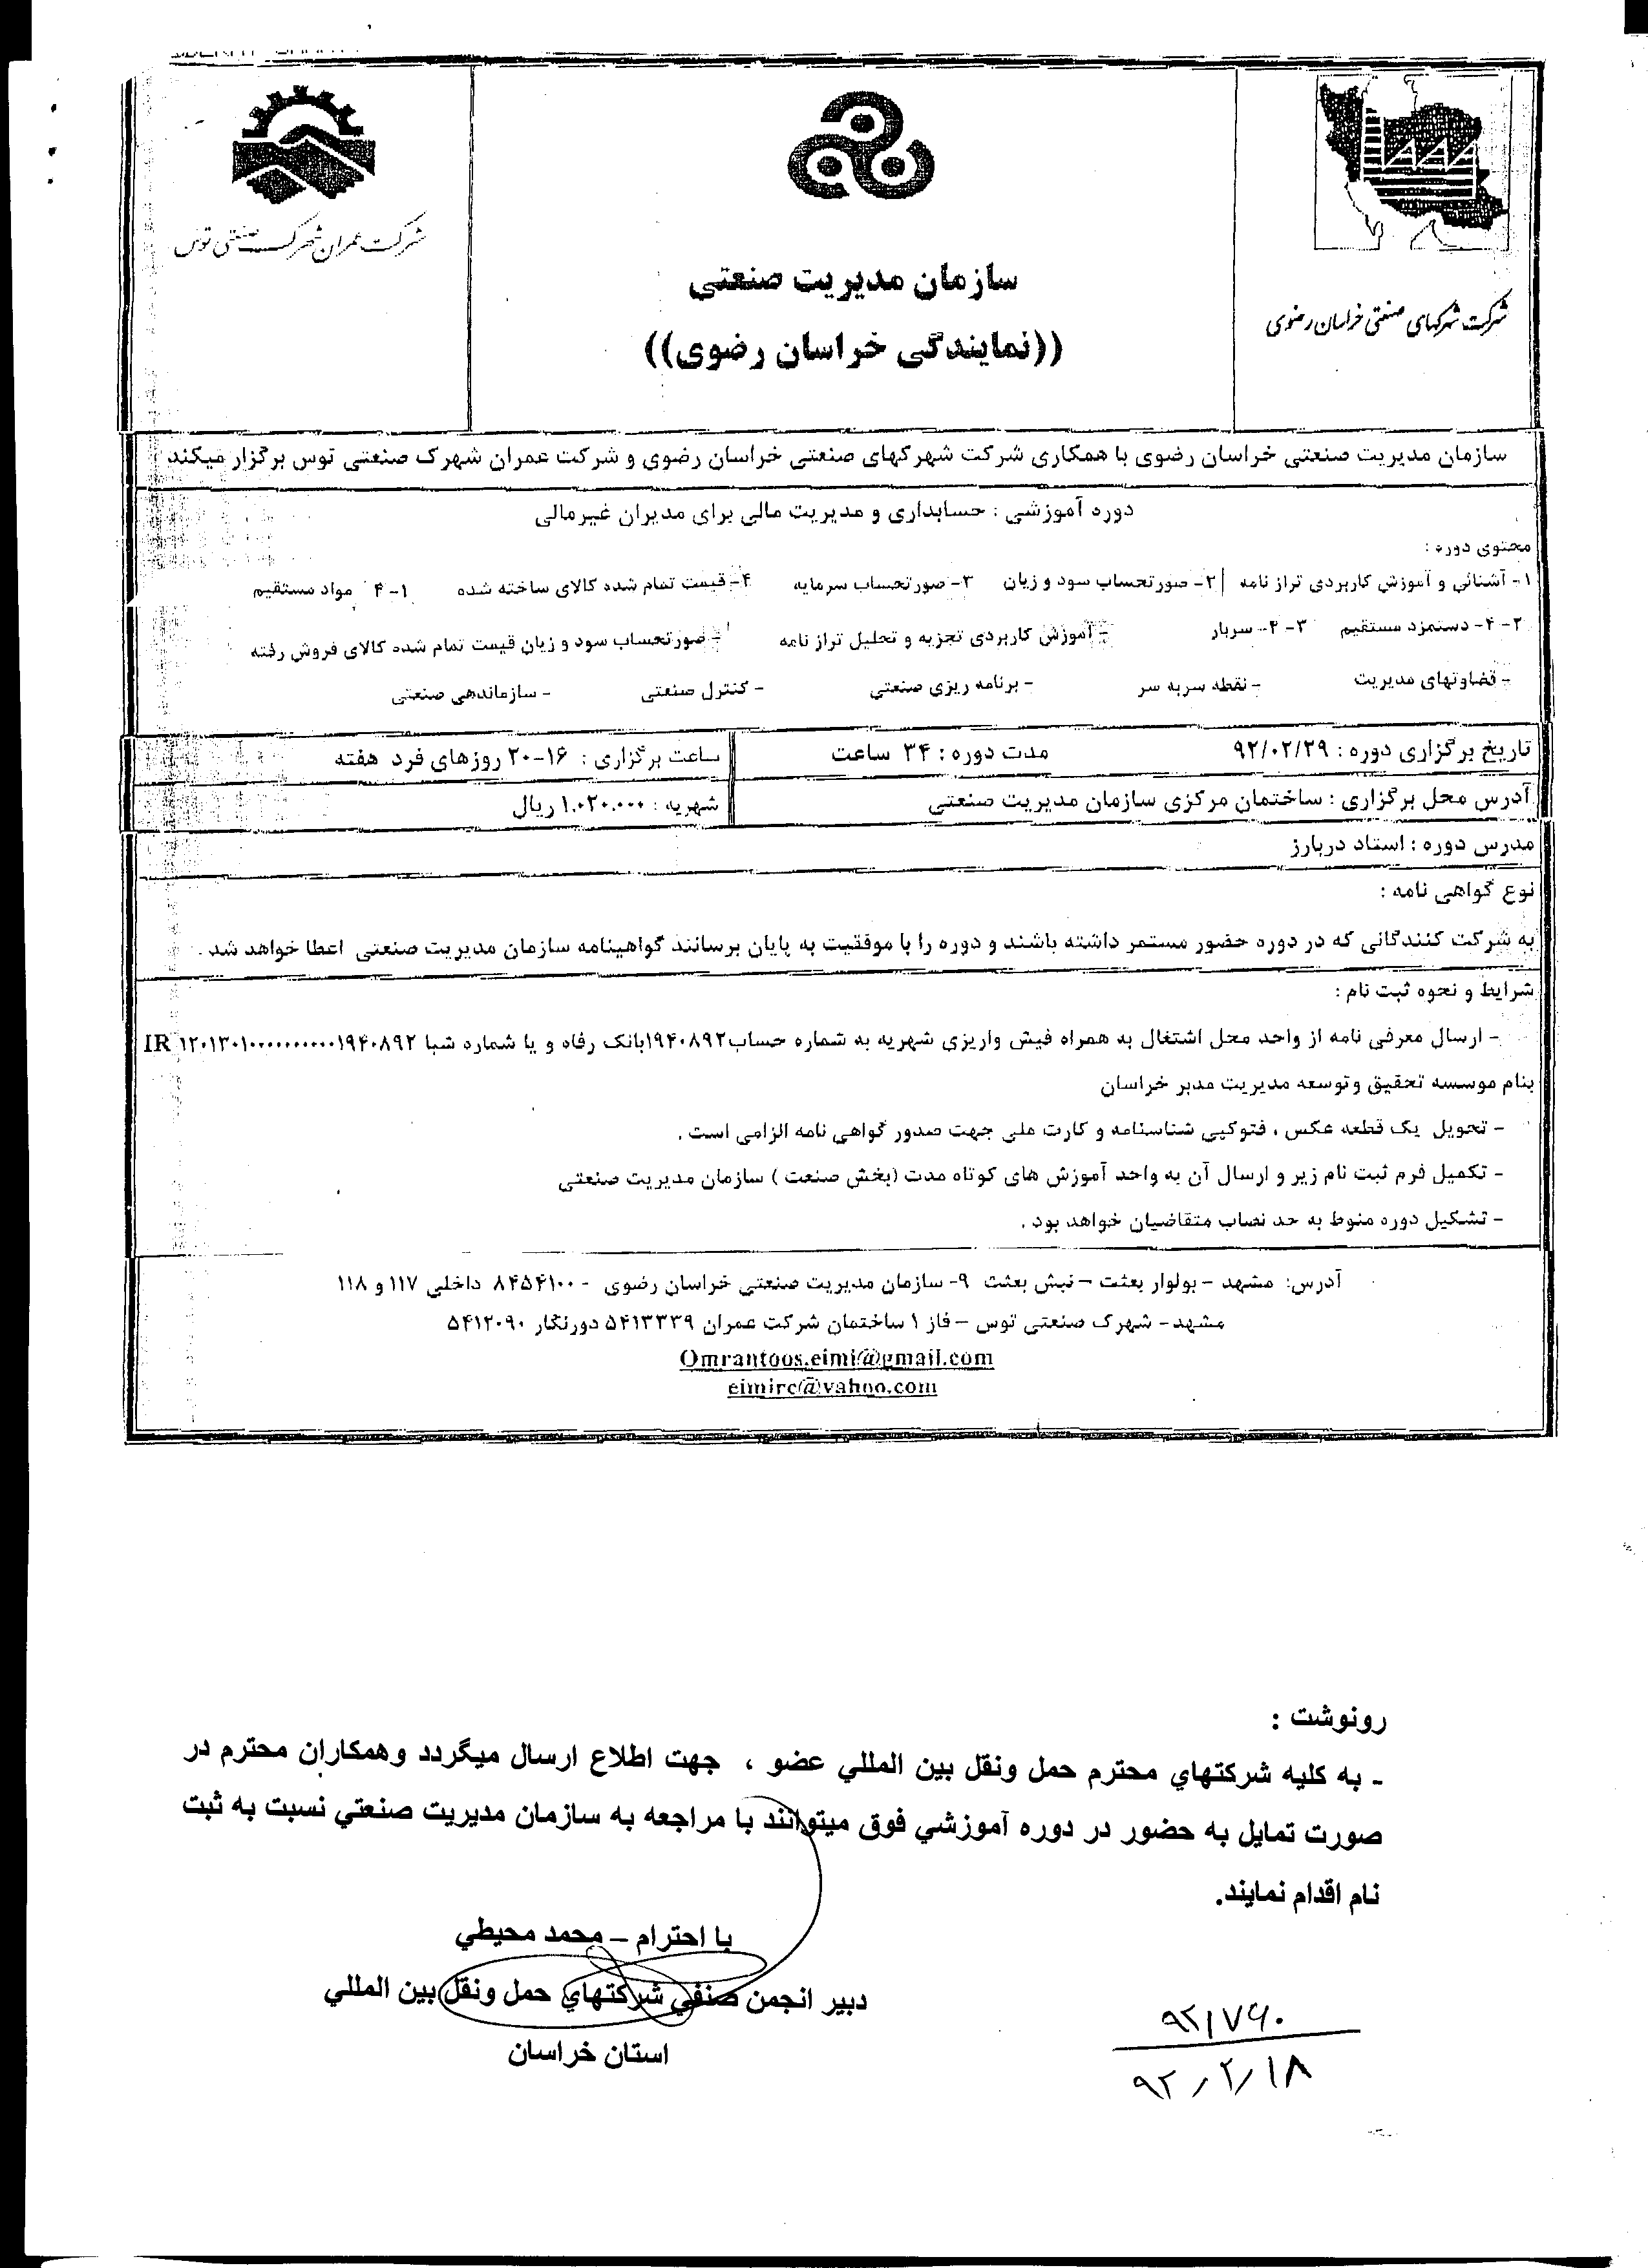 شرکت شهرکهای صنعتی خراسان رضوی
سازمان مدیریت صنعتی
((نمایندگی خراسان رضوی))
شرکت عمران شهرک صنعتی توس
سازمان مدیریت صنعتی خراسان رضوی با همکاری شرکت شهرکهای صنعتی خراسان رضوی و شرکت عمران شهرک صنعتی توس برگزار میکند
دوره آموزشی : حسابداری و مدیریت مالی برای مدیران غیرمالی
محتوی دوره :
۱- آشنائی و آموزش کاربردی تراز نامه ۲- صورتحساب سود و زیان ۳- صورتحساب سرمایه ۴- قیمت تمام شده کالای ساخته شده ۱-۴ مواد مستقیم
۲-۴- دستمزد مستقیم ۳-۴- سربار - آموزش کاربردی تجزیه و تحلیل تراز نامه - صورتحساب سود و زیان قیمت تمام شده کالای فروش رفته
- قضاوتهای مدیریت - نقطه سربه سر - برنامه ریزی صنعتی - کنترل صنعتی - سازماندهی صنعتی
تاریخ برگزاری دوره : ۹۲/۰۲/۲۹ مدت دوره : ۳۴ ساعت ساعت برگزاری : ۱۶-۲۰ روزهای فرد هفته
آدرس محل برگزاری : ساختمان مرکزی سازمان مدیریت صنعتی شهریه : ۱.۰۲۰.۰۰۰ ریال
مدرس دوره : استاد دربارز
نوع گواهی نامه :
به شرکت کنندگانی که در دوره حضور مستمر داشته باشند و دوره را با موفقیت به پایان برسانند گواهینامه سازمان مدیریت صنعتی اعطا خواهد شد .
شرایط و نحوه ثبت نام :
- ارسال معرفی نامه از واحد محل اشتغال به همراه فیش واریزی شهریه به شماره حساب۱۹۴۰۸۹۲بانک رفاه و یا شماره شبا
بنام موسسه تحقیق وتوسعه مدیریت مدبر خراسان
- تحویل یک قطعه عکس ، فتوکپی شناسنامه و کارت ملی جهت صدور گواهی نامه الزامی است .
- تکمیل فرم ثبت نام زیر و ارسال آن به واحد آموزش های کوتاه مدت (بخش صنعت ) سازمان مدیریت صنعتی
- تشکیل دوره منوط به حد نصاب متقاضیان خواهد بود .
آدرس: مشهد - بولوار بعثت - نبش بعثت ۹- سازمان مدیریت صنعتی خراسان رضوی - ۸۴۵۴۱۰۰ داخلی ۱۱۷ و ۱۱۸
مشهد- شهرک صنعتی توس - فاز ۱ ساختمان شرکت عمران ۵۴۱۳۳۳۹ دورنگار ۵۴۱۲۰۹۰
Omrantoos.eimi@gmail.com
eimirc@yahoo.com
رونوشت :
- به کلیه شرکتهاي محترم حمل ونقل بین المللي عضو ، جهت اطلاع ارسال میگردد وهمکاران محترم در
صورت تمایل به حضور در دوره آموزشي فوق میتوانند با مراجعه به سازمان مدیریت صنعتي نسبت به ثبت
نام اقدام نمایند.
با احترام – محمد محیطي
دبیر انجمن صنفي شرکتهاي حمل ونقل بین المللي
استان خراسان
۹۲/۷۶۰
۹۲/۲/۱۸